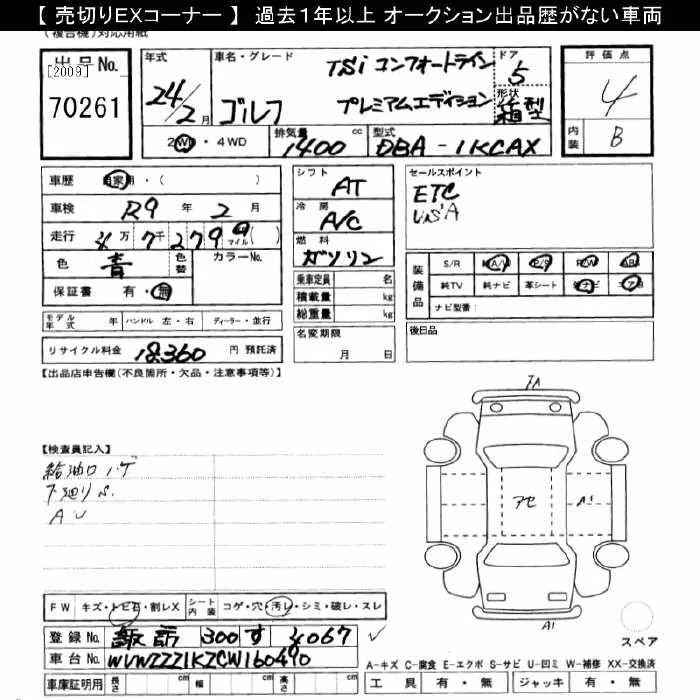 【 売切りEXコーナー 】 過去1年以上 オークション出品歴がない車両
(複合機)対応用紙
出品No.
[2009]
70261
年式
24/2月
車名・グレード
ゴルフ
TSi コンフォートライン
プレミアムエディション
ドア
5
形状
箱型
2WD・4WD
排気量
1400 cc
型式
DBA-1KCAX
評価点
4
内装
B
車歴 自家用・( )
車検 R9 年 2 月
走行 万 7千 279 マイル ( )
色 青
色替
カラーNo.
保証書 有・無
モデル年式 年 ハンドル 左・右 ディーラー・並行
リサイクル料金 18360 円 預託済
シフト
AT
冷房
A/C
燃料
ガソリン
乗車定員 名
積載量 kg
総重量 kg
名変期限
月 日
セールスポイント
ETC
装備品
S/R A/W P/S P/W AB
純TV 純ナビ 革シート
ナビ型番:
後日品
【出品店申告欄(不良箇所・欠品・注意事項等)】
【検査員記入】
給油口ハゲ
下廻りS.
AU
7A
アセ
A1
A1
スペア
FW キズ・トビ石・割レX
シート内装 コゲ・穴・汚レ・シミ・破レ・スレ
登録No. 諏訪 300 す 4067
車台No. WVWZZZ1KZCW160490
車庫証明用 長さ cm 幅 cm 高さ cm
A-キズ C-腐食 E-エクボ S-サビ U-凹ミ W-補修 XX-交換済
工具 有・無 ジャッキ 有・無